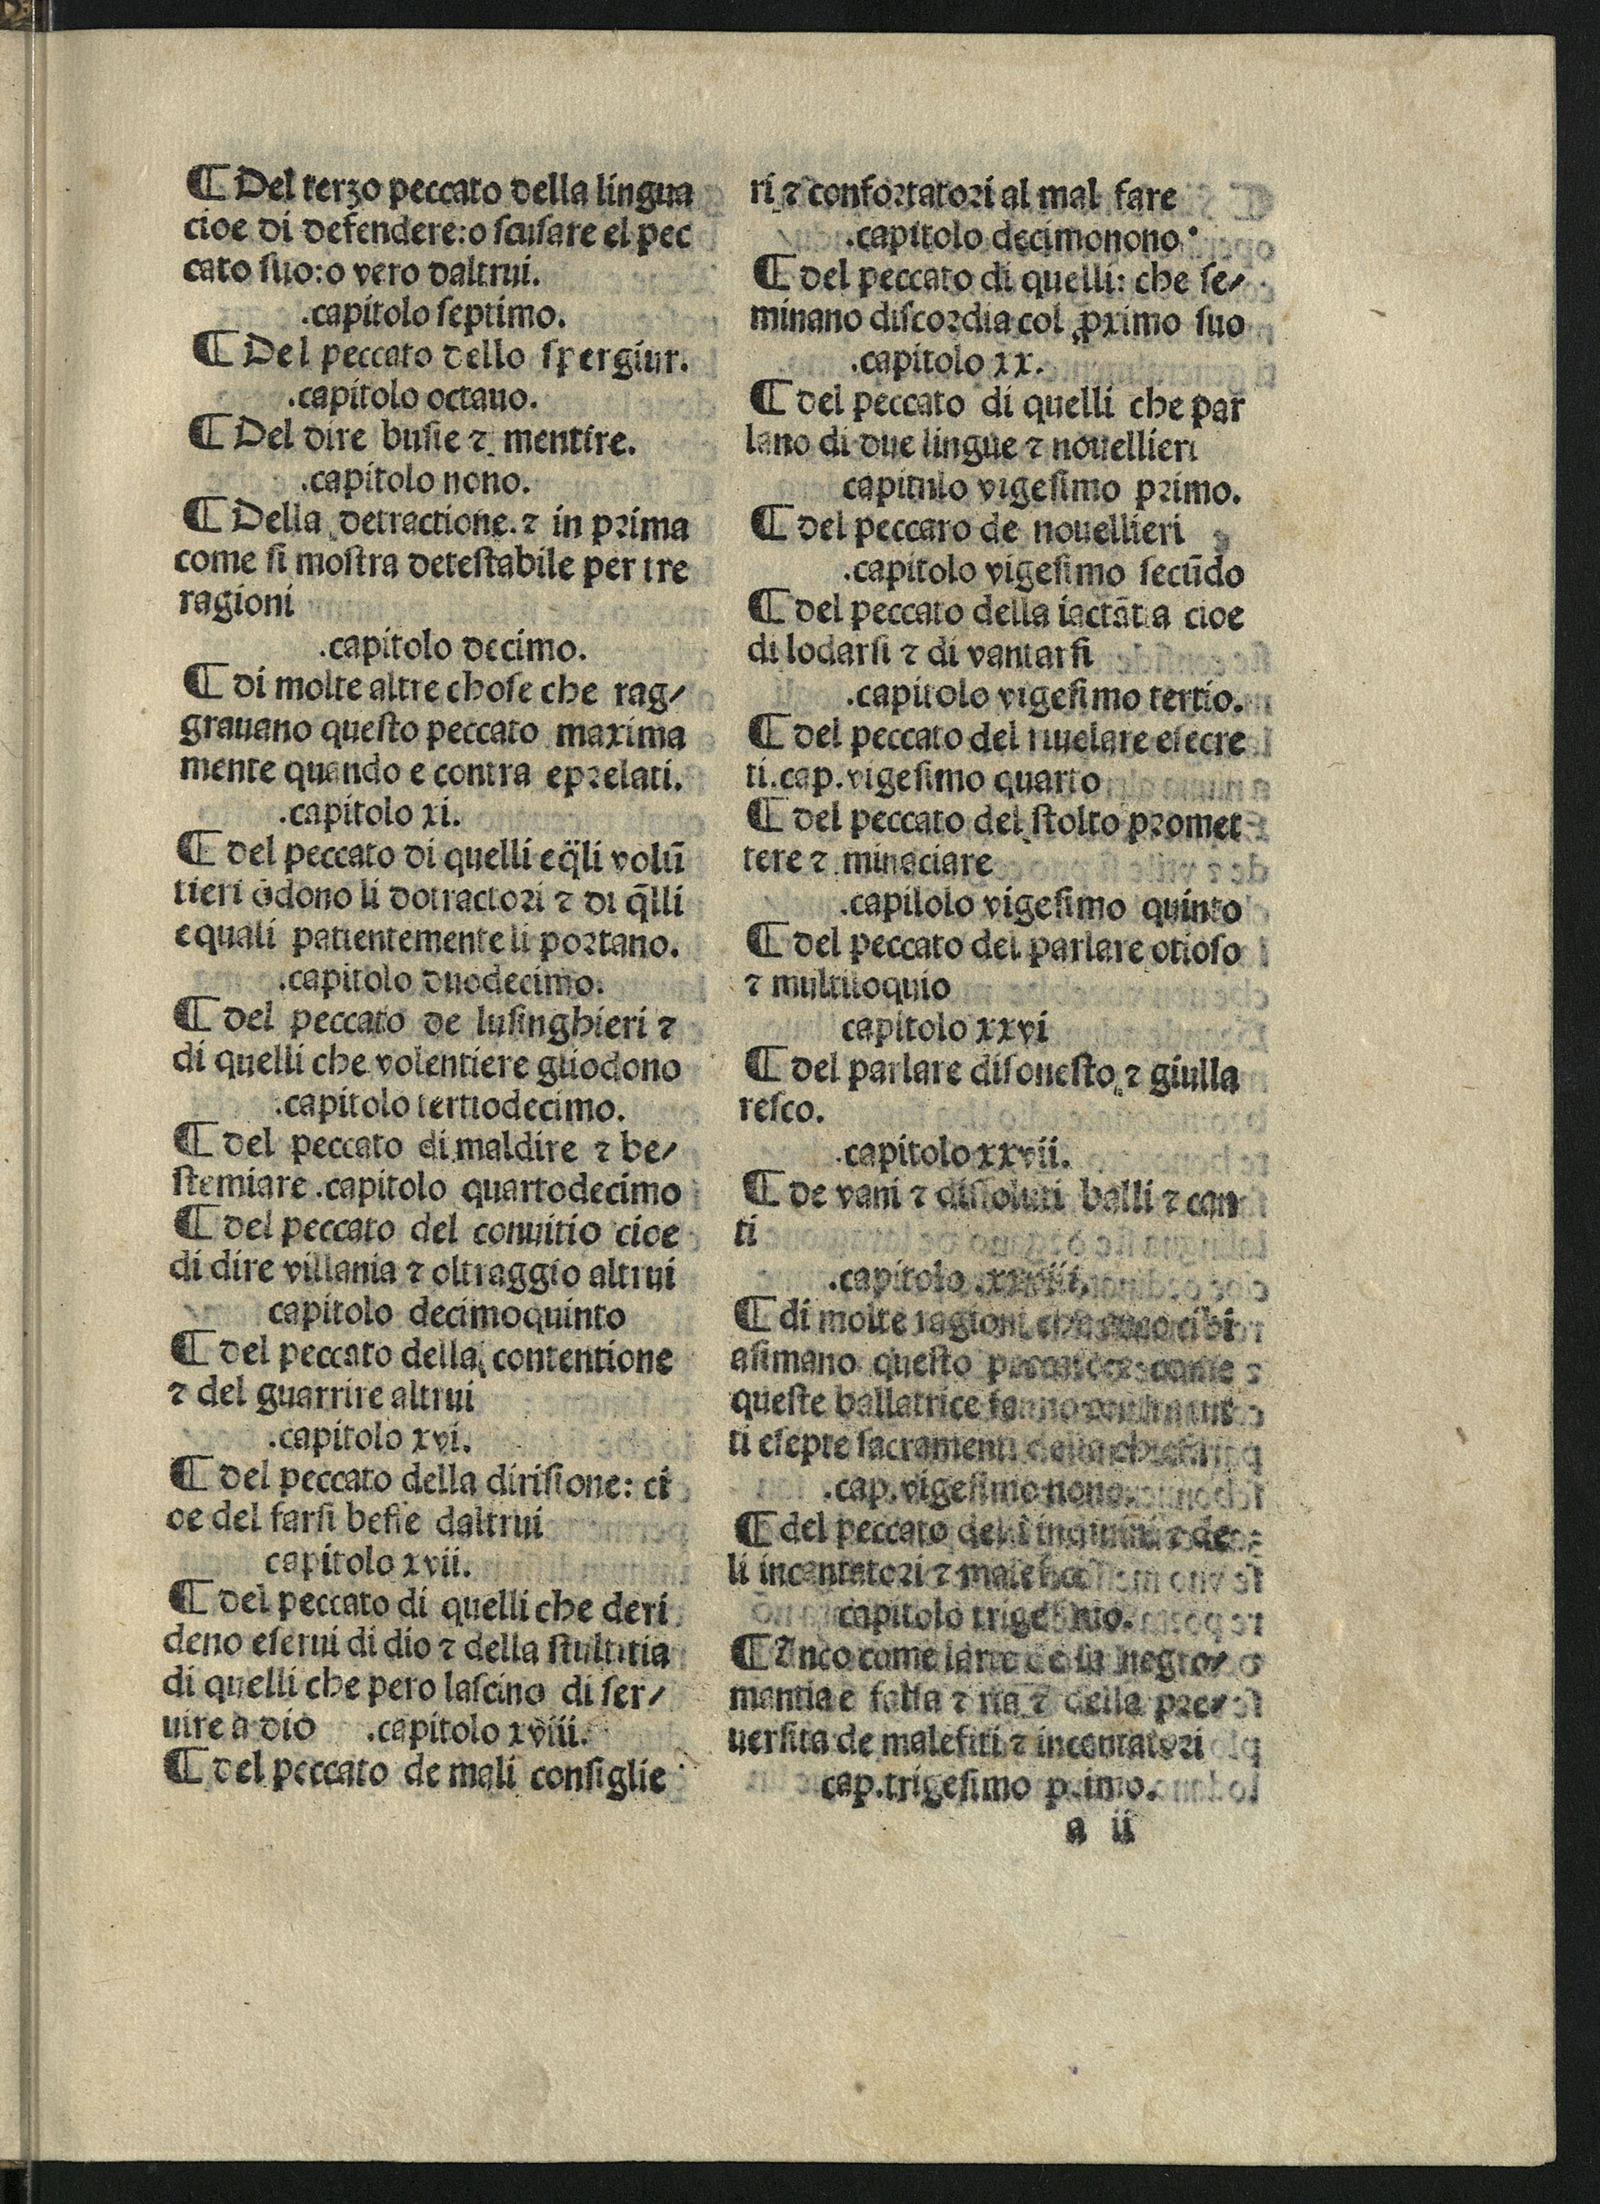 ¶ Del terzo peccato della lingua
cioe di defendere:o scusare el pec
cato suo:o vero daltrui.
.capitolo septimo.
¶ Del peccato dello spergiur.
.capitolo octauo.
¶ Del dire busie ⁊ mentire.
.capitolo nono.
¶ Della detractione.⁊ in prima
come si mostra detestabile per tre
ragioni
.capitolo decimo.
¶ di molte altre chose che rag/
grauano questo peccato maxima
mente quando e contra eprelati.
.capitolo xi.
¶ del peccato di quelli eq̃li volũ
tieri odono li dotractori ⁊ di q̃lli
equali patientemente li portano.
.capitolo duodecimo.
¶ del peccato de lusinghieri ⁊
di quelli che volentiere gliodono
.capitolo tertiodecimo.
¶ del peccato di maldire ⁊ be/
stemiare .capitolo quartodecimo
¶ del peccato del conuitio cioe
di dire villania ⁊ oltraggio altrui
capitolo decimoquinto
¶ del peccato della contentione
⁊ del guarrire altrui
.capitolo xvi.
¶ del peccato della dirisione: ci
oe del farsi befie daltrui
capitolo xvii.
¶ del peccato di quelli che deri
deno eserui di dio ⁊ della stultitia
di quelli che pero lascino di ser/
uire a dio .capitolo xviii.
¶ del peccato de mali consiglie
ri ⁊ confortatori al mal fare
.capitolo decimonono.
¶ del peccato di quelli: che se/
minano discordia col ꝓximo suo
.capitolo xx.
¶ del peccato di quelli che par
lano di due lingue ⁊ nouellieri
capitulo vigesimo primo.
¶ del peccaro de nouellieri
.capitolo vigesimo secũdo
¶ del peccato della iactãtia cioe
di lodarsi ⁊ di vantarsi
.capitolo vigesimo tertio.
¶ del peccato del riuelare esecre
ti.cap.vigesimo quarto
¶ del peccato del stolto promet
tere ⁊ minaciare
.capilolo vigesimo quinto
¶ del peccato del parlare otioso
⁊ multiloquio
capitolo xxvi
¶ del parlare disonesto ⁊ giulla
resco.
.capitolo xxvii.
¶ de vani ⁊ dissoluti balli ⁊ can
ti
.capitolo xxviii.
¶ di molte ragioni ci bi
asimano questo come
queste ballatrice fanno
ti esepte sacramenti della chiesa
.cap.vigesimo nono.
¶ del peccato deli indiuini ⁊ de
li incantatori ⁊ malefici
capitolo trigesimo.
¶ Anco come larte de la negro/
mantia e falsa ⁊ ria ⁊ della per/
uersita de malefiti ⁊ incantatori
cap.trigesimo primo.
a ii